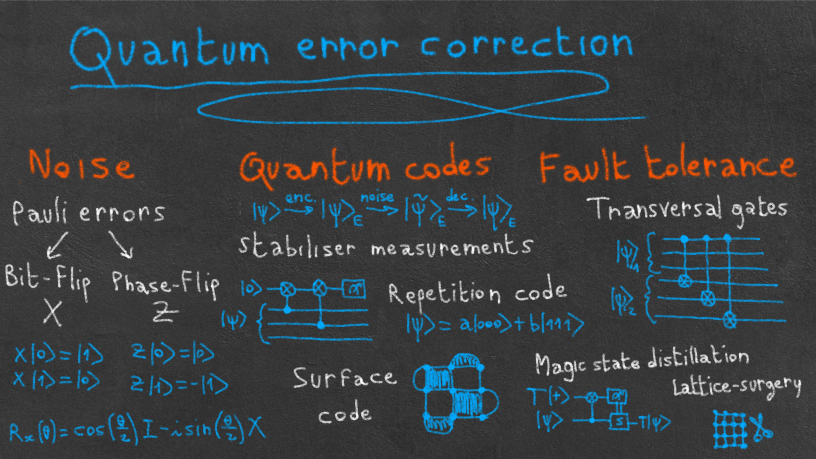 Quantum error correction
Noise
Pauli errors
Bit-Flip Phase-Flip
X Z
X|0⟩=|1⟩ Z|0⟩=|0⟩
X|1⟩=|0⟩ Z|1⟩=-|1⟩
Rx(θ)=cos(θ/2) I-i sin(θ/2) X
Quantum codes
|ψ⟩ enc.→ |ψ⟩E noise→ |ψ̃⟩E dec.→ |ψ⟩E
stabiliser measurements
|0⟩
|ψ⟩
Repetition code
|ψ⟩=a|000⟩+b|111⟩
Surface
code
Fault tolerance
Transversal gates
|ψ⟩1
|ψ⟩2
Magic state distillation
Lattice-surgery
T|+⟩
|ψ⟩ S T|ψ⟩